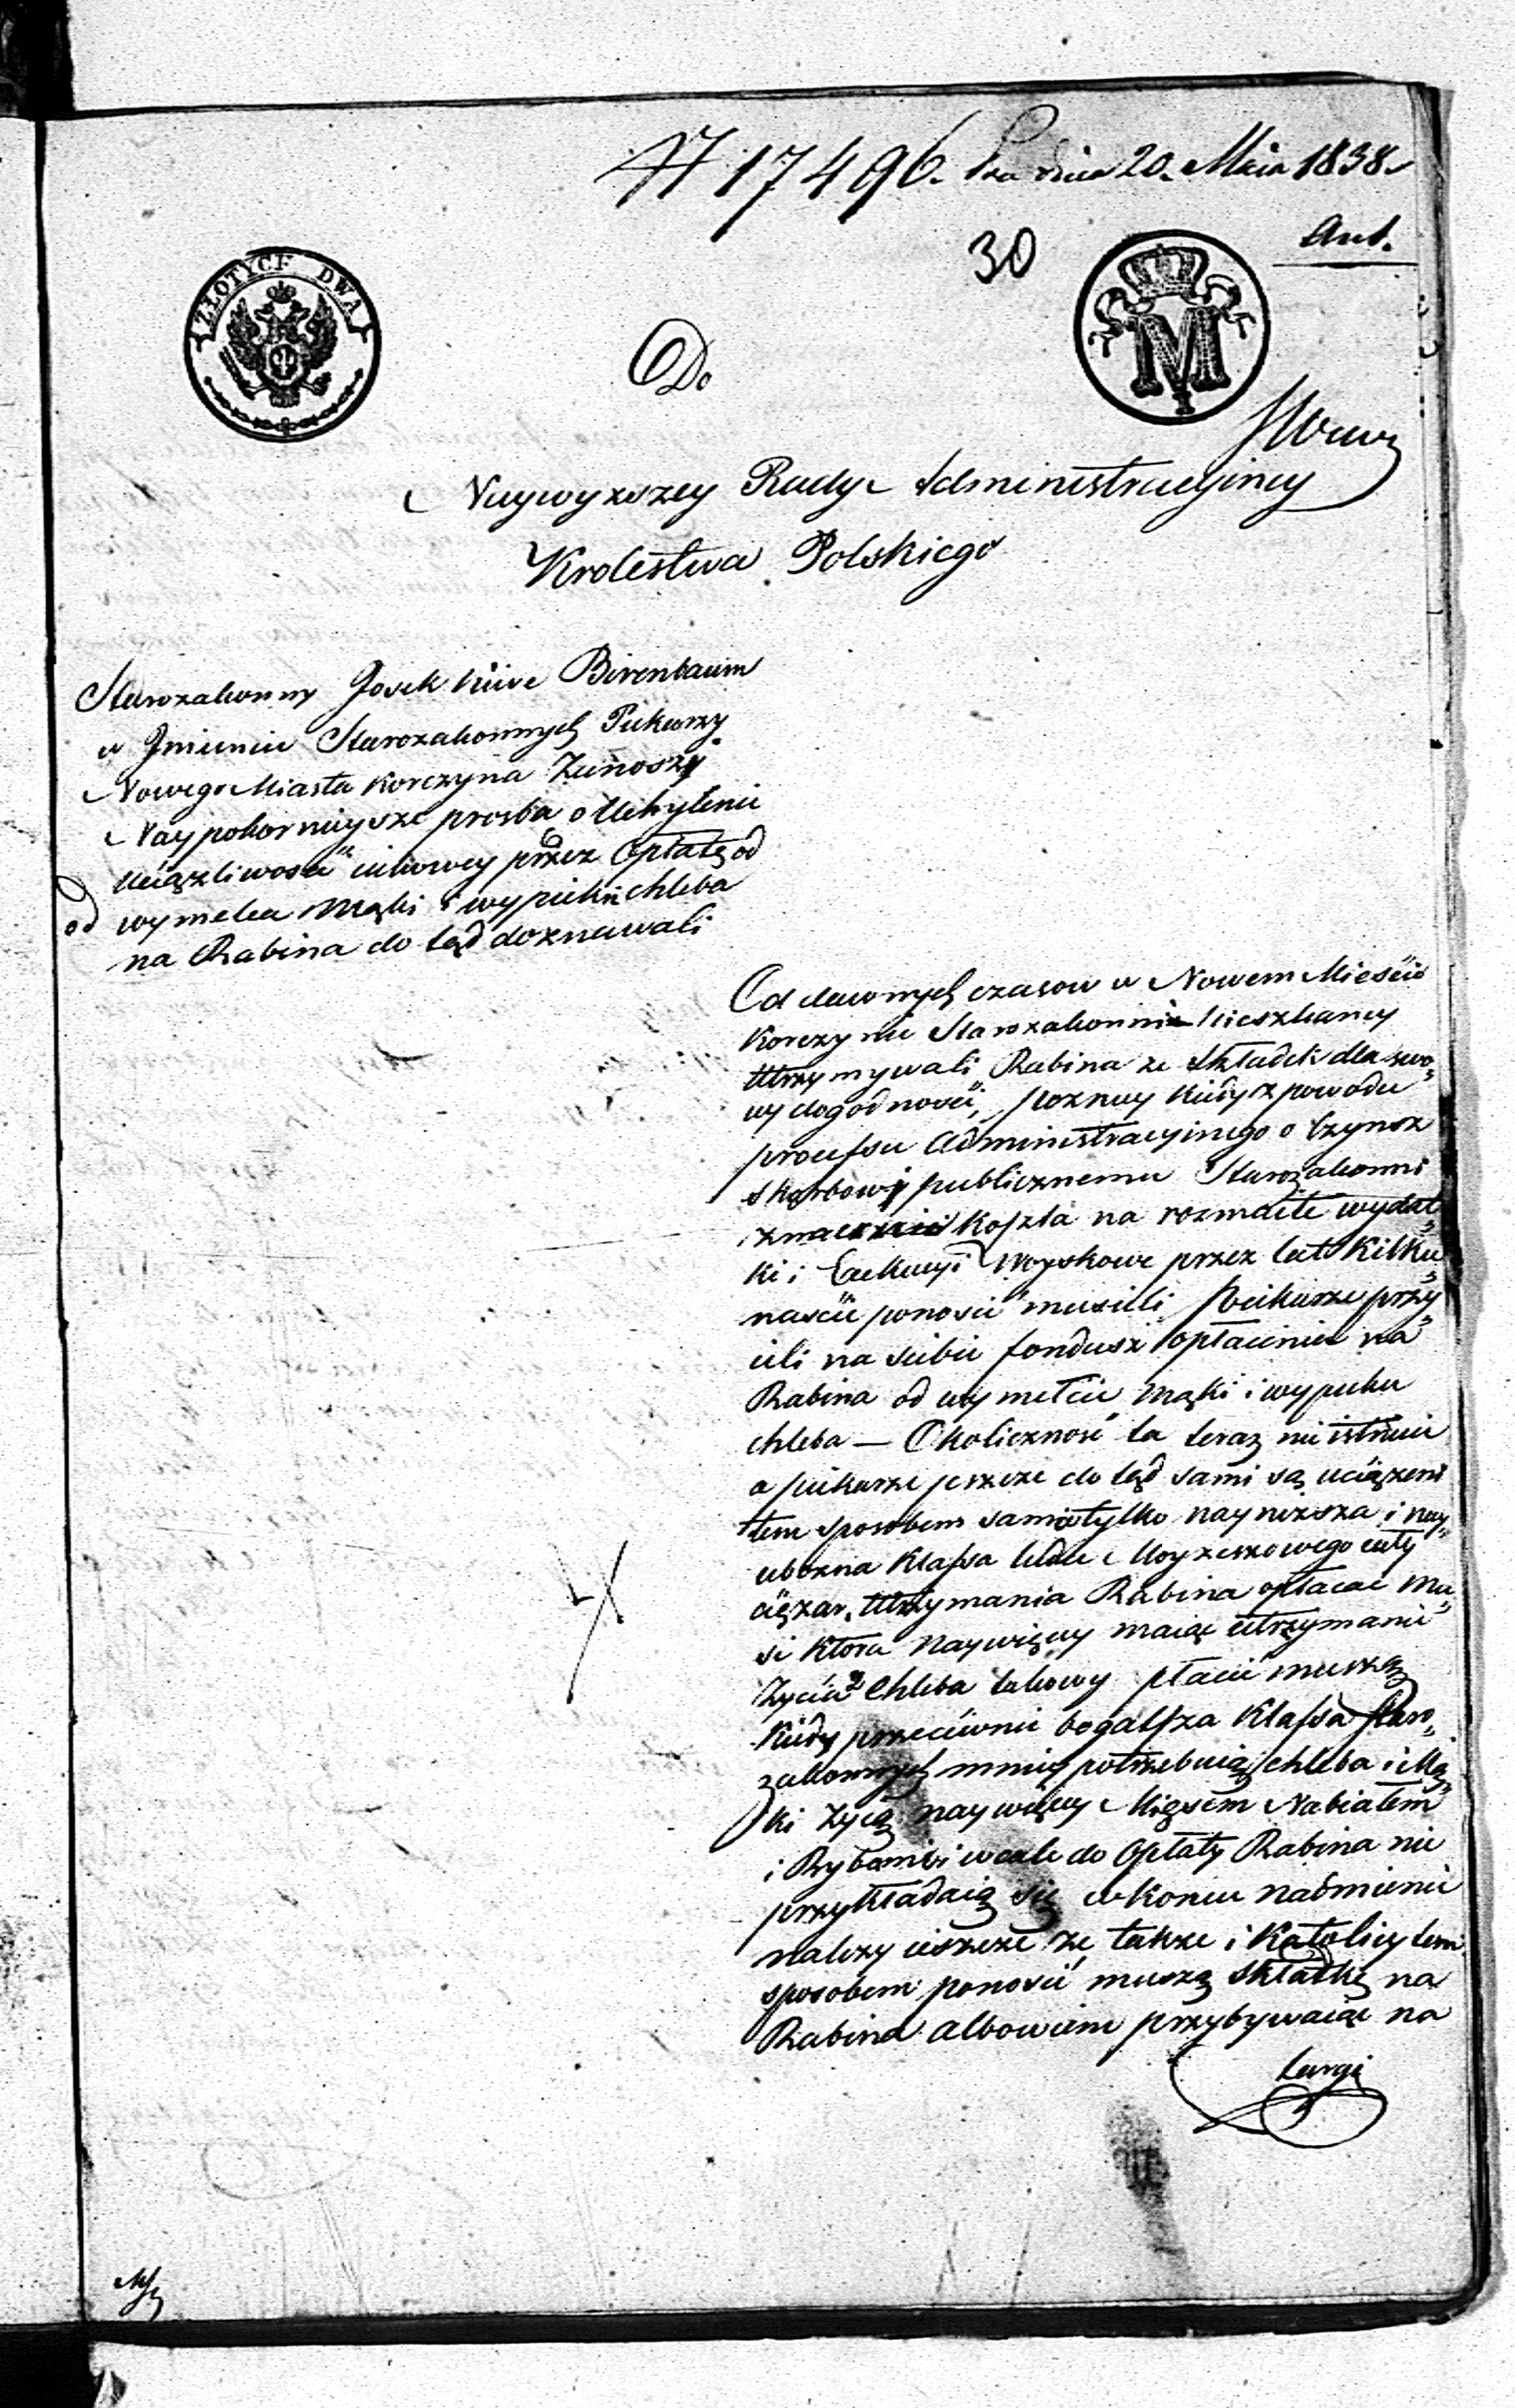 N 17496. dnia 20. Maia 1838.
Ant.
30
ZŁOTYCH DWA
M
Do
Naywyzszey Rady Administracyiney
Krolestwa Polskiego
Starozakonny Josek Birenbaum
w Jmieniu Starozakonnych Piekarzy
Nowego Miasta Korczyna Zanoszy
Naypokornieysze prosba o Uchylenie
Uciązliwosci iakowey przez Opłatę od
od wymelca Mąki i wypieku chleba
na Rabina do tąd doznawali
Od dawnych czasow w Nowem Mieście
Korczynie Starozakonni Mieszkancy
Utrzymywali Rabina ze Składek dla swo„
iey dogodnosci, pozniey kiedy z powodu
processu Administracyinego o Czynsz
Skarbowi publicznemu Starozakonni
znaczne Koszta na rozmaite wydat„
ki i Exekucyi Woyskowe przez lat Kilku„
nascie ponosić musieli Piekarze przy„
ieli na siebie fundusz opłacenia na
Rabina od wymełcie Mąki i wypieku
chleba — Okoliczność ta teraz nie istnieie
a piekarze przeze do tąd sami są uciązeni
tem sposobem sama tylko nayniższa i nay„
ubozna Klassa ludu Moyzeszowego cały
cięzar Utrzymania Rabina opłacać mu„
si ktora naywięcy maiąc utrzymanie
Zycia z Chleba takowy płacić muszą
Kiedy przeciwnie bogatsza Klassa Staro„
zakonnych mniey potrzebuią chleba i Mą„
ki Zyią naywięcy Mięsem Nabiałem
i Rybami i wcale do Opłaty Rabina nie
przykładaią się w Koncu nadmienić
nalezy ieszcze ze takze i Katolicy tem
sposobem ponosić muszą Składkę na
Rabina albowiem przybywaiąc na
targi